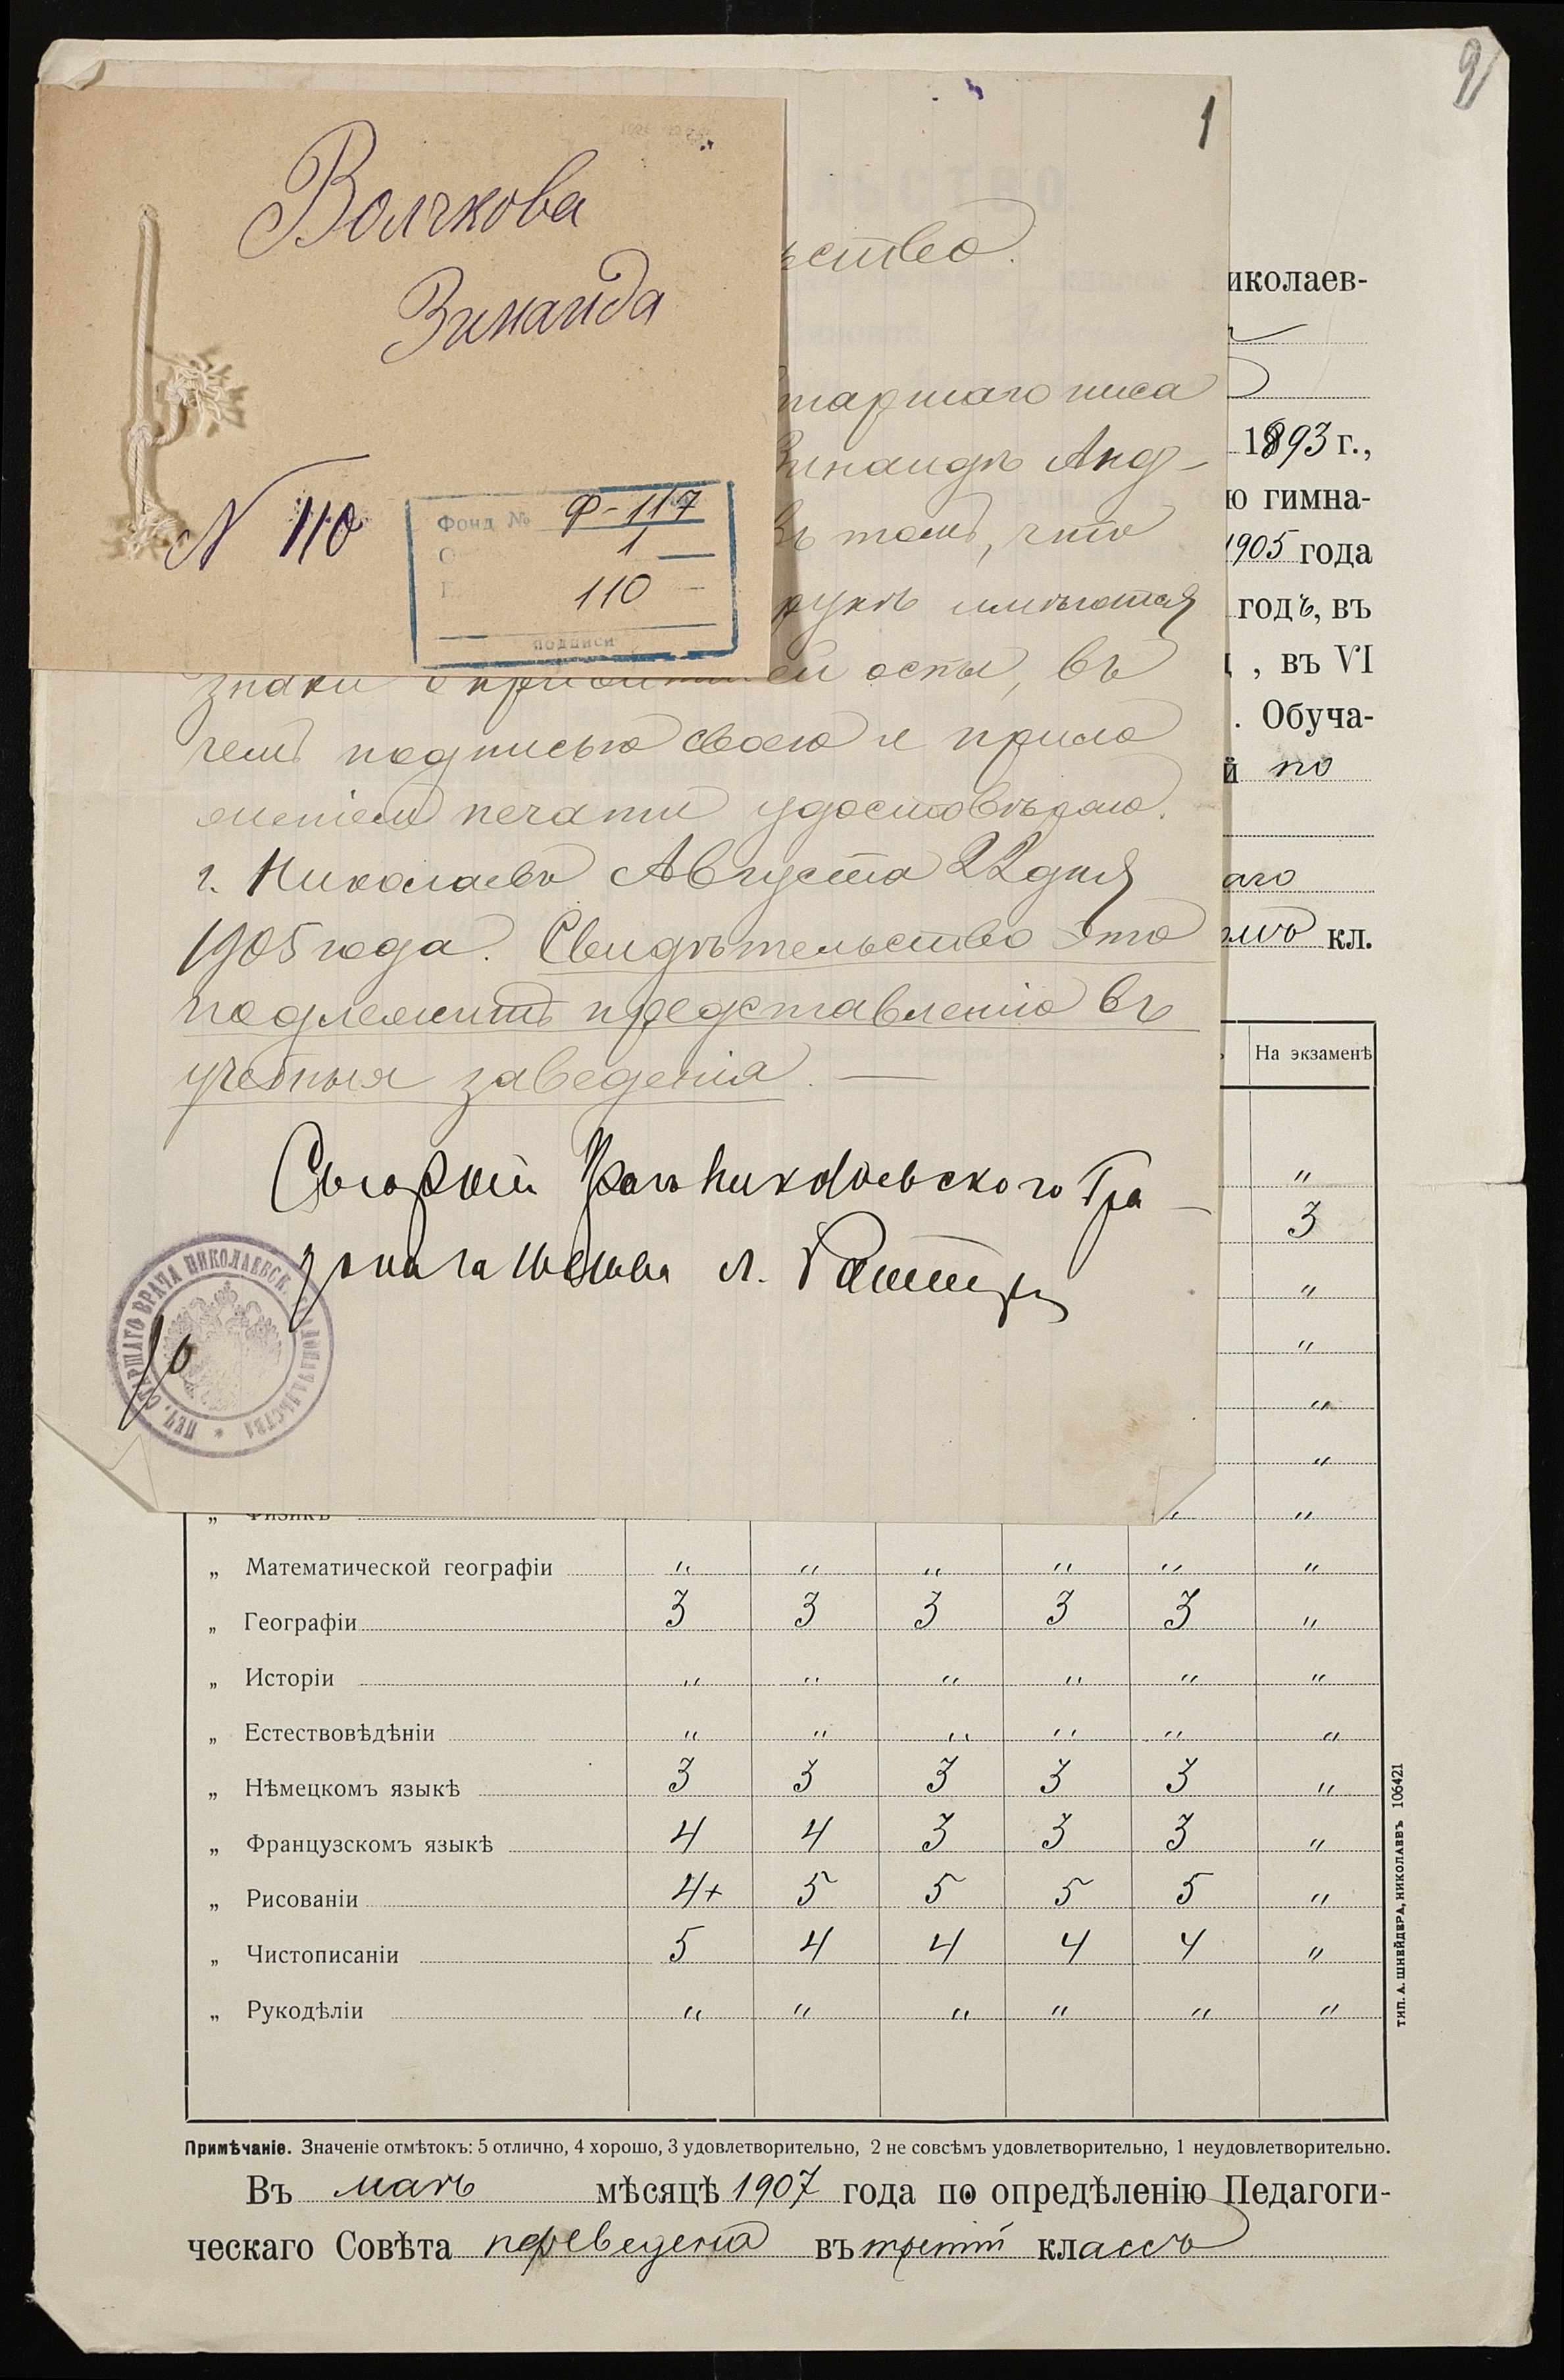 Волчкова
Зинаида
N 110
Фонд № Ф-117
1
110
подписи
1
ьство.
таршаго писа
Зинаидѣ Анд-
въ томъ, что
рукѣ имѣются
знаки о привитой ей оспы, въ
чемъ подписью своею и прило
женіемъ печати удостовѣряю.
г. Николаевъ Августа 22 дня
1905 года. Свидѣтельство это
подлежитъ представленію въ
учебныя заведенія. —
Старшій Врачъ Николаевского Гра-
доначальства
ПЕЧ. СТАРШАГО ВРАЧА НИКОЛАЕВСК. ГРАДОНАЧАЛЬСТВА
9
иколаев-
1893 г.,
ю гимна-
1905 года
годъ, въ
, въ VI
. Обуча-
й по
аго
омъ кл.
На экзаменѣ
"
3
"
"
"
"
„ Физикѣ " "
„ Математической географіи " " " " " "
„ Географіи 3 3 3 3 3 "
„ Исторіи " " " " " "
„ Естествовѣдѣніи " " " " " "
„ Нѣмецкомъ языкѣ 3 3 3 3 3 "
„ Французскомъ языкѣ 4 4 3 3 3 "
„ Рисованіи 4+ 5 5 5 5 "
„ Чистописаніи 5 4 4 4 4 "
„ Рукодѣліи " " " " " "
Примѣчаніе. Значеніе отмѣтокъ: 5 отлично, 4 хорошо, 3 удовлетворительно, 2 не совсѣмъ удовлетворительно, 1 неудовлетворительно.
Въ маѣ мѣсяцѣ 1907 года по опредѣленію Педагоги-
ческаго Совѣта переведена въ третій классъ
ТИП. А. ШНЕЙДЕРА, НИКОЛАЕВЪ 106421